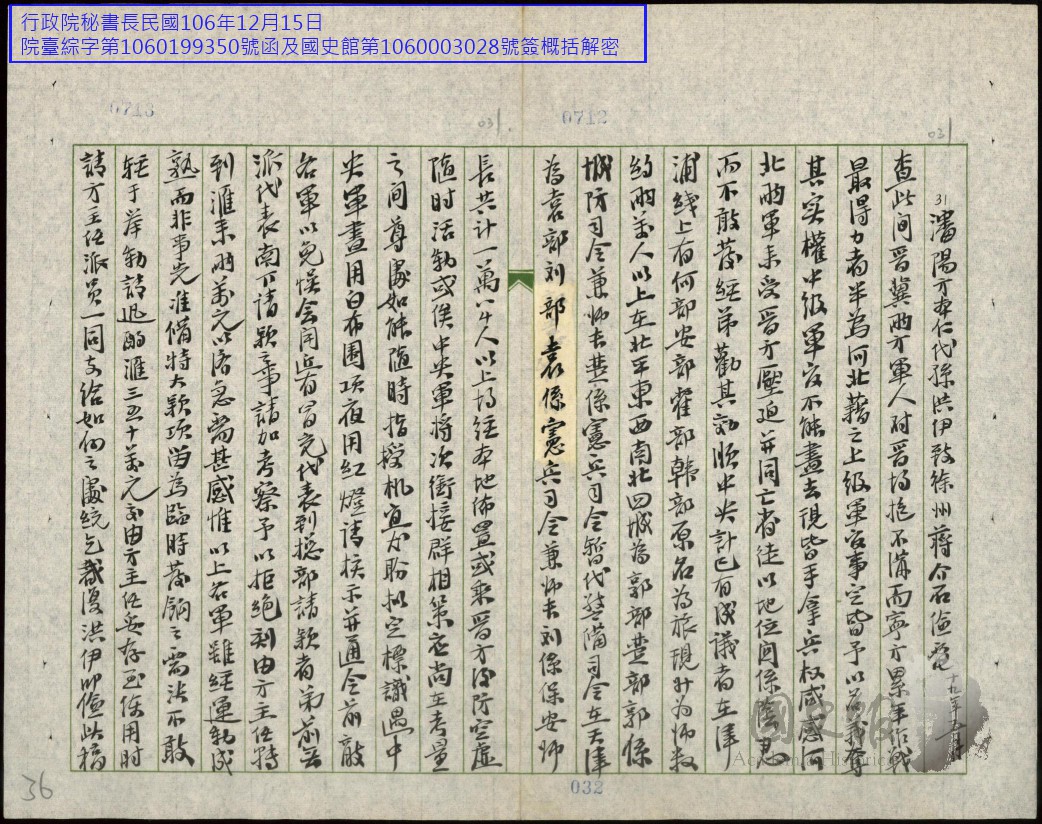 行政院秘書長民國106年12月15日
院臺綜字第1060199350號函及國史館第1060003028號簽概括解密
0713
0712
031
031
31
瀋陽方本仁代孫洪伊致徐州蔣介石儉電 十九年五月
查此間晉冀兩方軍人對晉均抱不滿而寧方累年作戰
最得力者半為河北籍之上級軍官事定皆予以前義奪
其实權中級軍官不能盡去現皆手拿兵权感感河
北兩軍未受晉方壓迫并同亡者徒以地位関係隐忍
而不敢發經弟勸其効順中央計已有成議者在津
浦线上有何部安部霍部韓部原名為旅現升为师数
約兩萬人以上在北平東西南北四城為郭部楚部郭係
城防司令兼师长楚係憲兵司令暫代警備司令在天津
為袁部刘部袁係憲兵司令兼师长刘係保安师
長共计一萬八千人以上均经本地佈置或乘晉方後防空虛
隨时活動或俟中央軍将次銜接群相策应尚在考量
之间尊處如能隨時指授机宜尤盼拟定標識遇中
央軍晝用白布圍項夜用红燈請核示并通令前敵
各軍以免误会闻近有冒充代表到總部請款者弟前無
派代表南下請款事請加考察予以拒绝刻由方主任轉
到滙来兩萬元以济急需甚感惟以上各軍雖經運動成
熟而非事先准備特大款項留為臨時發餉之需决不敢
轻于举動請迅酌滙三五十萬元交由方主任妥存至使用时
請方主任派员一同支给如何之處统乞裁復洪伊叩儉此稿
032
36
國史館
Academia Historica